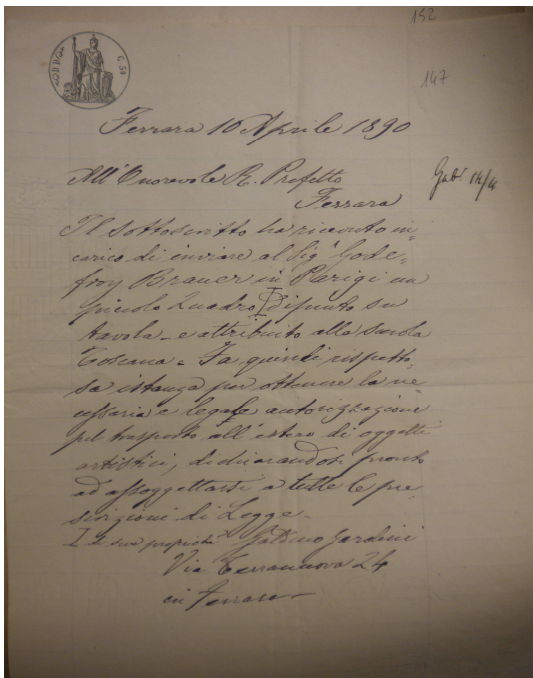 152
147
Ferrara 10 Aprile 1890
All'Onorevole R. Prefetto
Ferrara
Gab.
Il sottoscritto ha ricevuto in=
carico di inviare al Sig.r Gode=
froy Brauer in Parigi un
piccolo Quadro dipinto su
tavola - e attribuito alla scuola
Toscana - Fa quindi rispetto=
sa istanza per ottenere la ne=
cessaria e legale autorizzazione
pel trasporto all'estero di oggetti
artistici, dichiarandosi pronto
ad assoggettarsi a tutte le pre=
scrizioni di Legge -
Galdino Gardini
Via Terranuova 24
in Ferrara